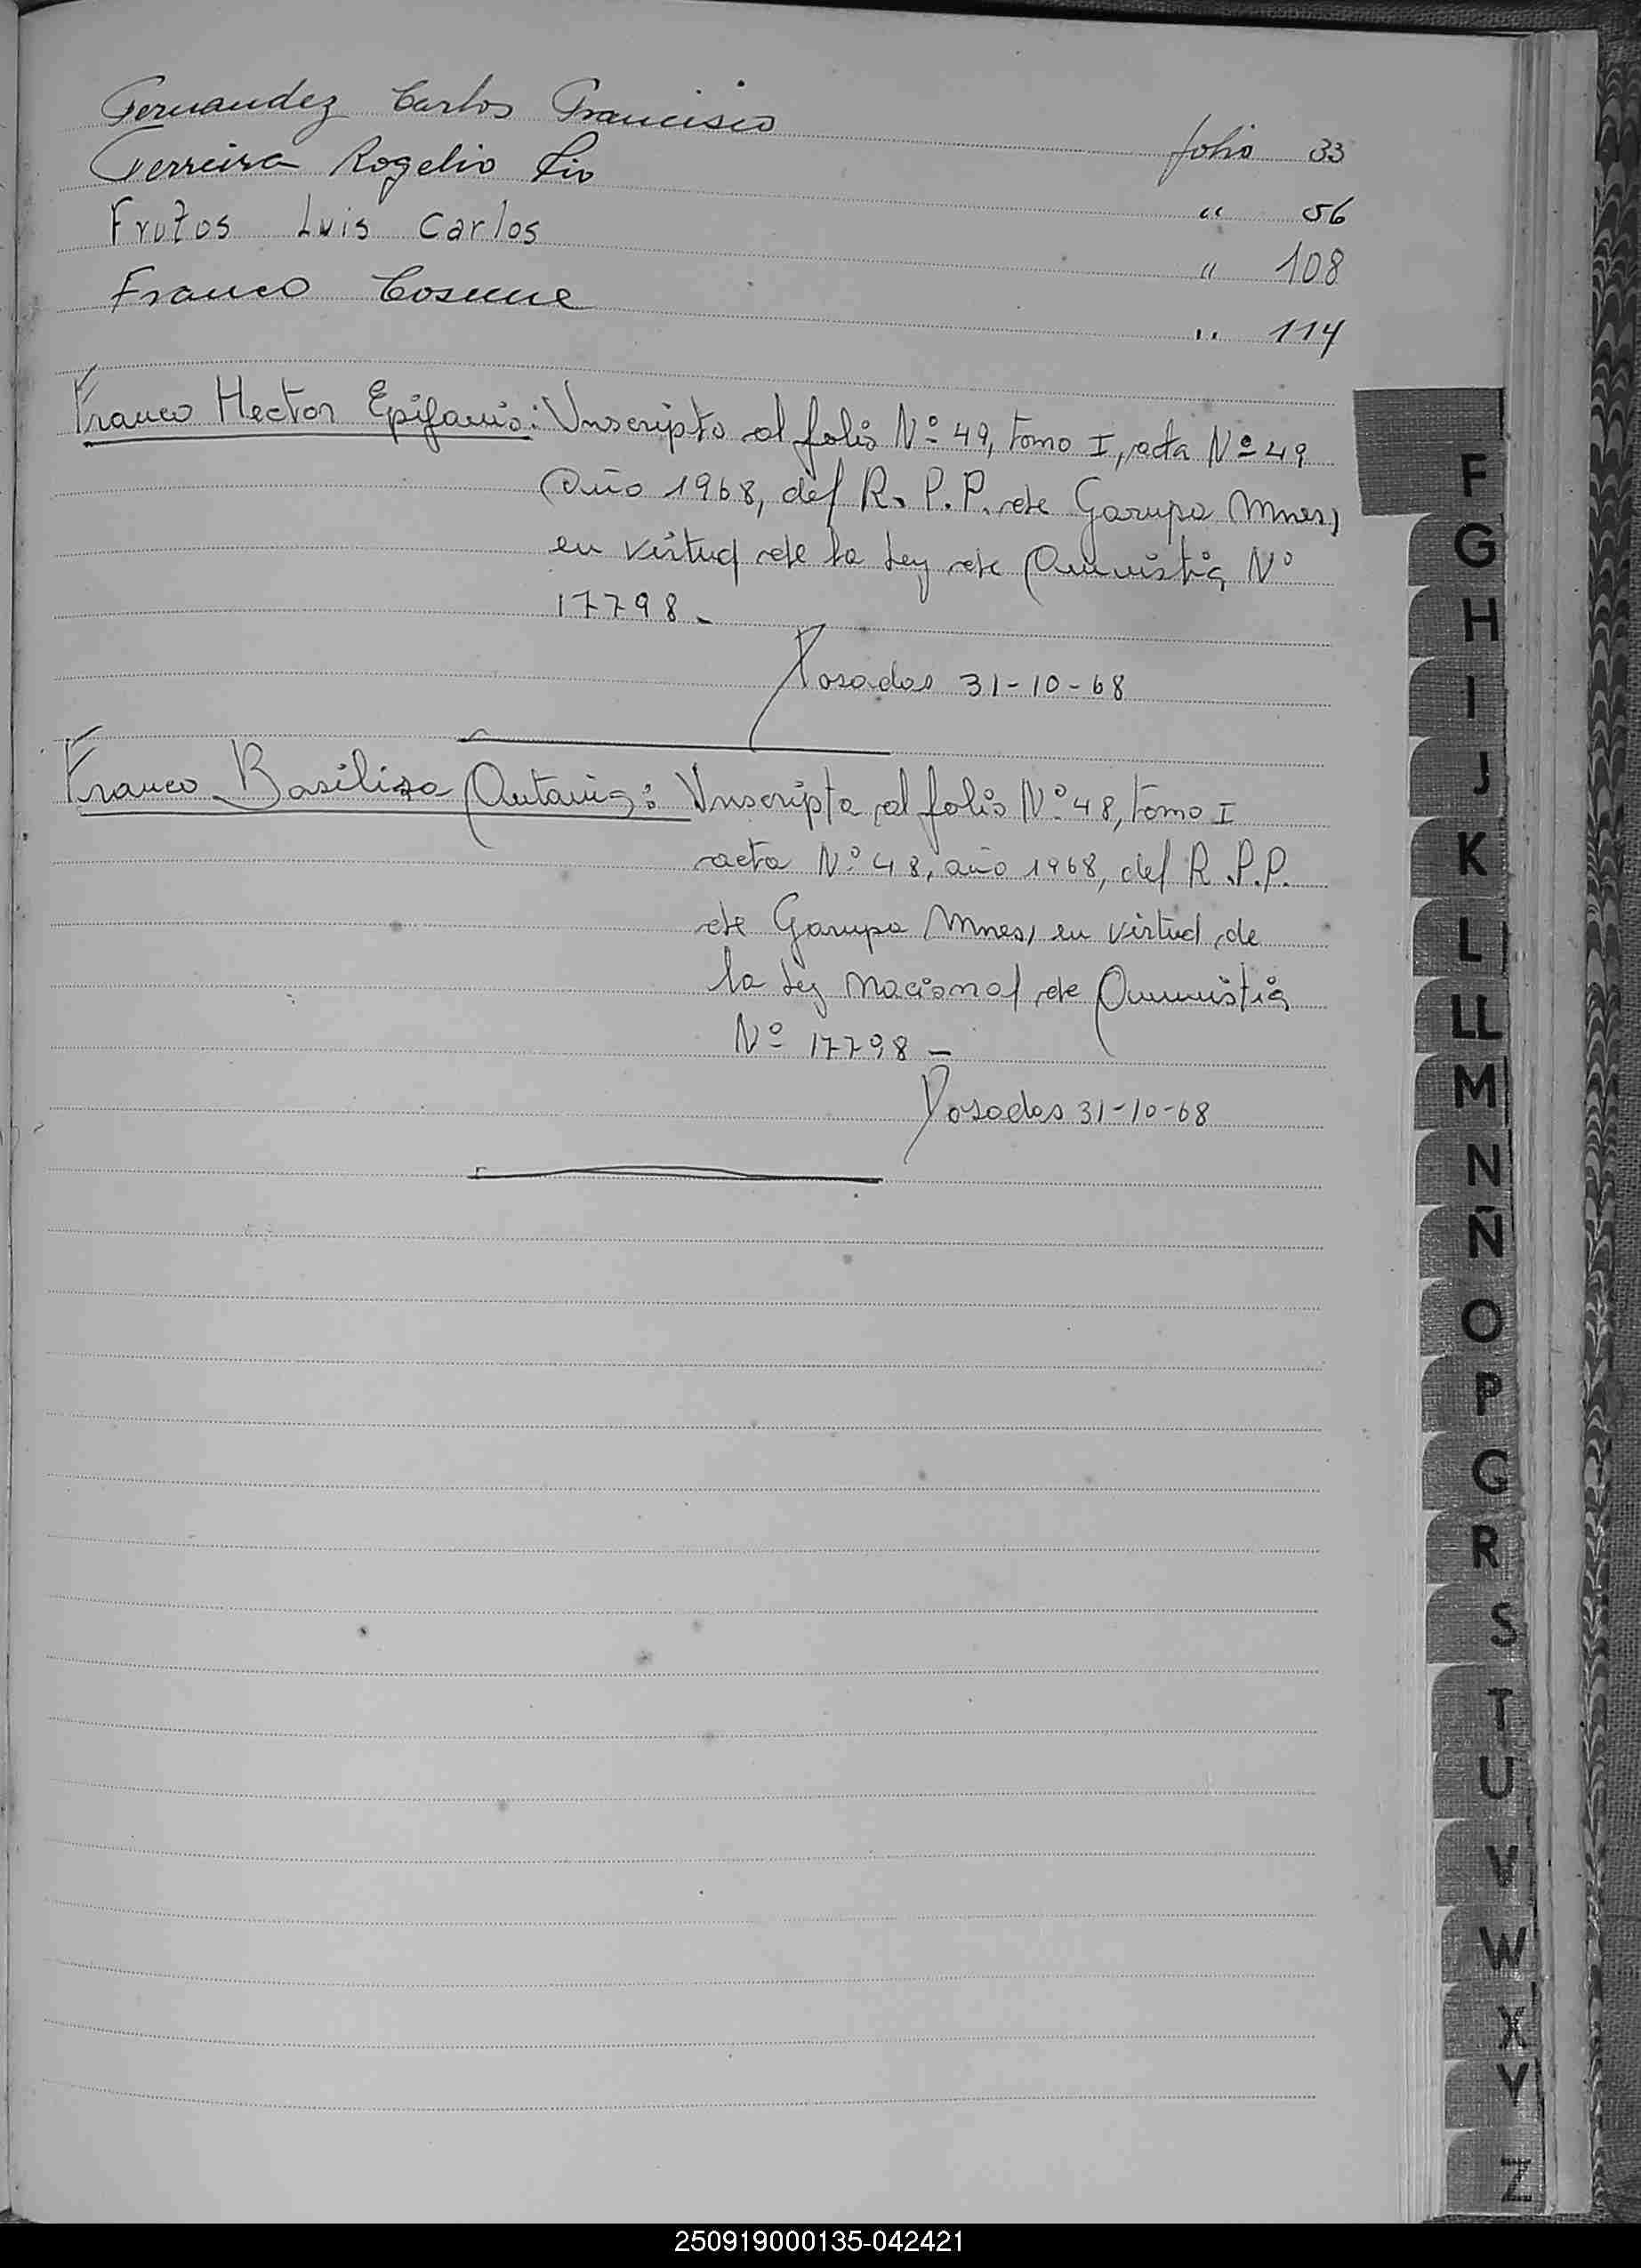 Fernandez Carlos Francisco folio 33
Ferreira Rogelio Pio " 56
Frutos Luis Carlos " 108
Franco Cosme " 114
Franco Hector Epifanio: Inscripto al folio Nº 49, tomo I, acta Nº 49
Año 1968, del R. P. P. de Garupa Mnes,
en virtud de la Ley de Amnistia Nº
17798.
Posadas 31-10-68
Franco Basiliza Antonia: Inscripta al folio Nº 48, tomo I
acta Nº 48, año 1968, del R. P. P.
de Garupa Mnes, en virtud de
la Ley nacional de Amnistia
Nº 17798 -
Posadas 31-10-68
F
G
H
I
J
K
L
LL
M
N
Ñ
O
P
R
S
T
U
V
W
X
Y
Z
250919000135-042421